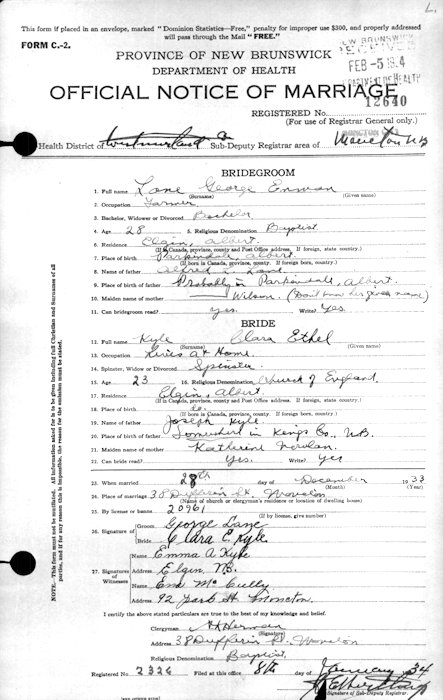 This form if placed in an envelope, marked "Dominion Statistics—Free," penalty for improper use $300, and properly addressed
will pass through the Mail "FREE."
FORM C.-2.
PROVINCE OF NEW BRUNSWICK
DEPARTMENT OF HEALTH
OFFICIAL NOTICE OF MARRIAGE
NEW BRUNSWICK
FEB -5
DEPARTMENT OF HEALTH
12640
REGISTERED No.
(For use of Registrar General only.)
Health District of Westmorland Co Sub-Deputy Registrar area of Moncton N.B.
BRIDEGROOM
1. Full name Lane George
(Surname) (Given name)
2. Occupation Farmer
3. Bachelor, Widower or Divorced Bachelor
4. Age 28 5. Religious Denomination Baptist
6. Residence Elgin, Albert.
(If in Canada, province, county and Post Office address. If foreign, state country.)
7. Place of birth Parkindale, Albert.
(If born in Canada, province, county. If foreign, country.)
8. Name of father Alfred Lane
9. Place of birth of father Probably in Parkindale, Albert.
(If born in Canada, province, county. If foreign, country.)
10. Maiden name of mother Wilson. (Don't know her given name)
11. Can bridegroom read? yes. Write? Yes.
BRIDE
12. Full name Kyle Clara Ethel
(Surname) (Given name)
13. Occupation Lives at Home.
14. Spinster, Widow or Divorced Spinster
15. Age 23 16. Religious Denomination Church of England.
17. Residence Elgin, Albert.
(If in Canada, province, county and Post Office address. If foreign, country.)
18. Place of birth do.
(If born in Canada, province, county. If foreign, country.)
19. Name of father Joseph Kyle.
20. Place of birth of father Somewhere in Kings Co., N.B.
21. Maiden name of mother Katherine Nowlan
22. Can bride read? Yes. Write? Yes
23. When married 28th day of December 1933
24. Place of marriage 38 Dufferin St. Moncton
(Name of church or clergyman's residence or location of dwelling house)
25. By license or banns 20961
(If by license, give number)
26. Signature of
Groom George Lane
Bride Clara E. Kyle.
27. Signature of Witnesses
Name Emma A Kyle
Address Elgin, N.B.
Name McCully
Address 92 Park St Moncton.
I certify the above stated particulars are true to the best of my knowledge and belief.
Clergyman
(Signature)
Address 38 Dufferin St. Moncton
Religious Denomination Baptist.
Registered No. 2326 Filed at this office 8th January 34
Signature of Sub-Deputy Registrar.
All information asked for is to be given including full Christian and Surnames of all
persons mentioned. If impossible, the reason for the omission must be stated.
This form must not be altered in any way.